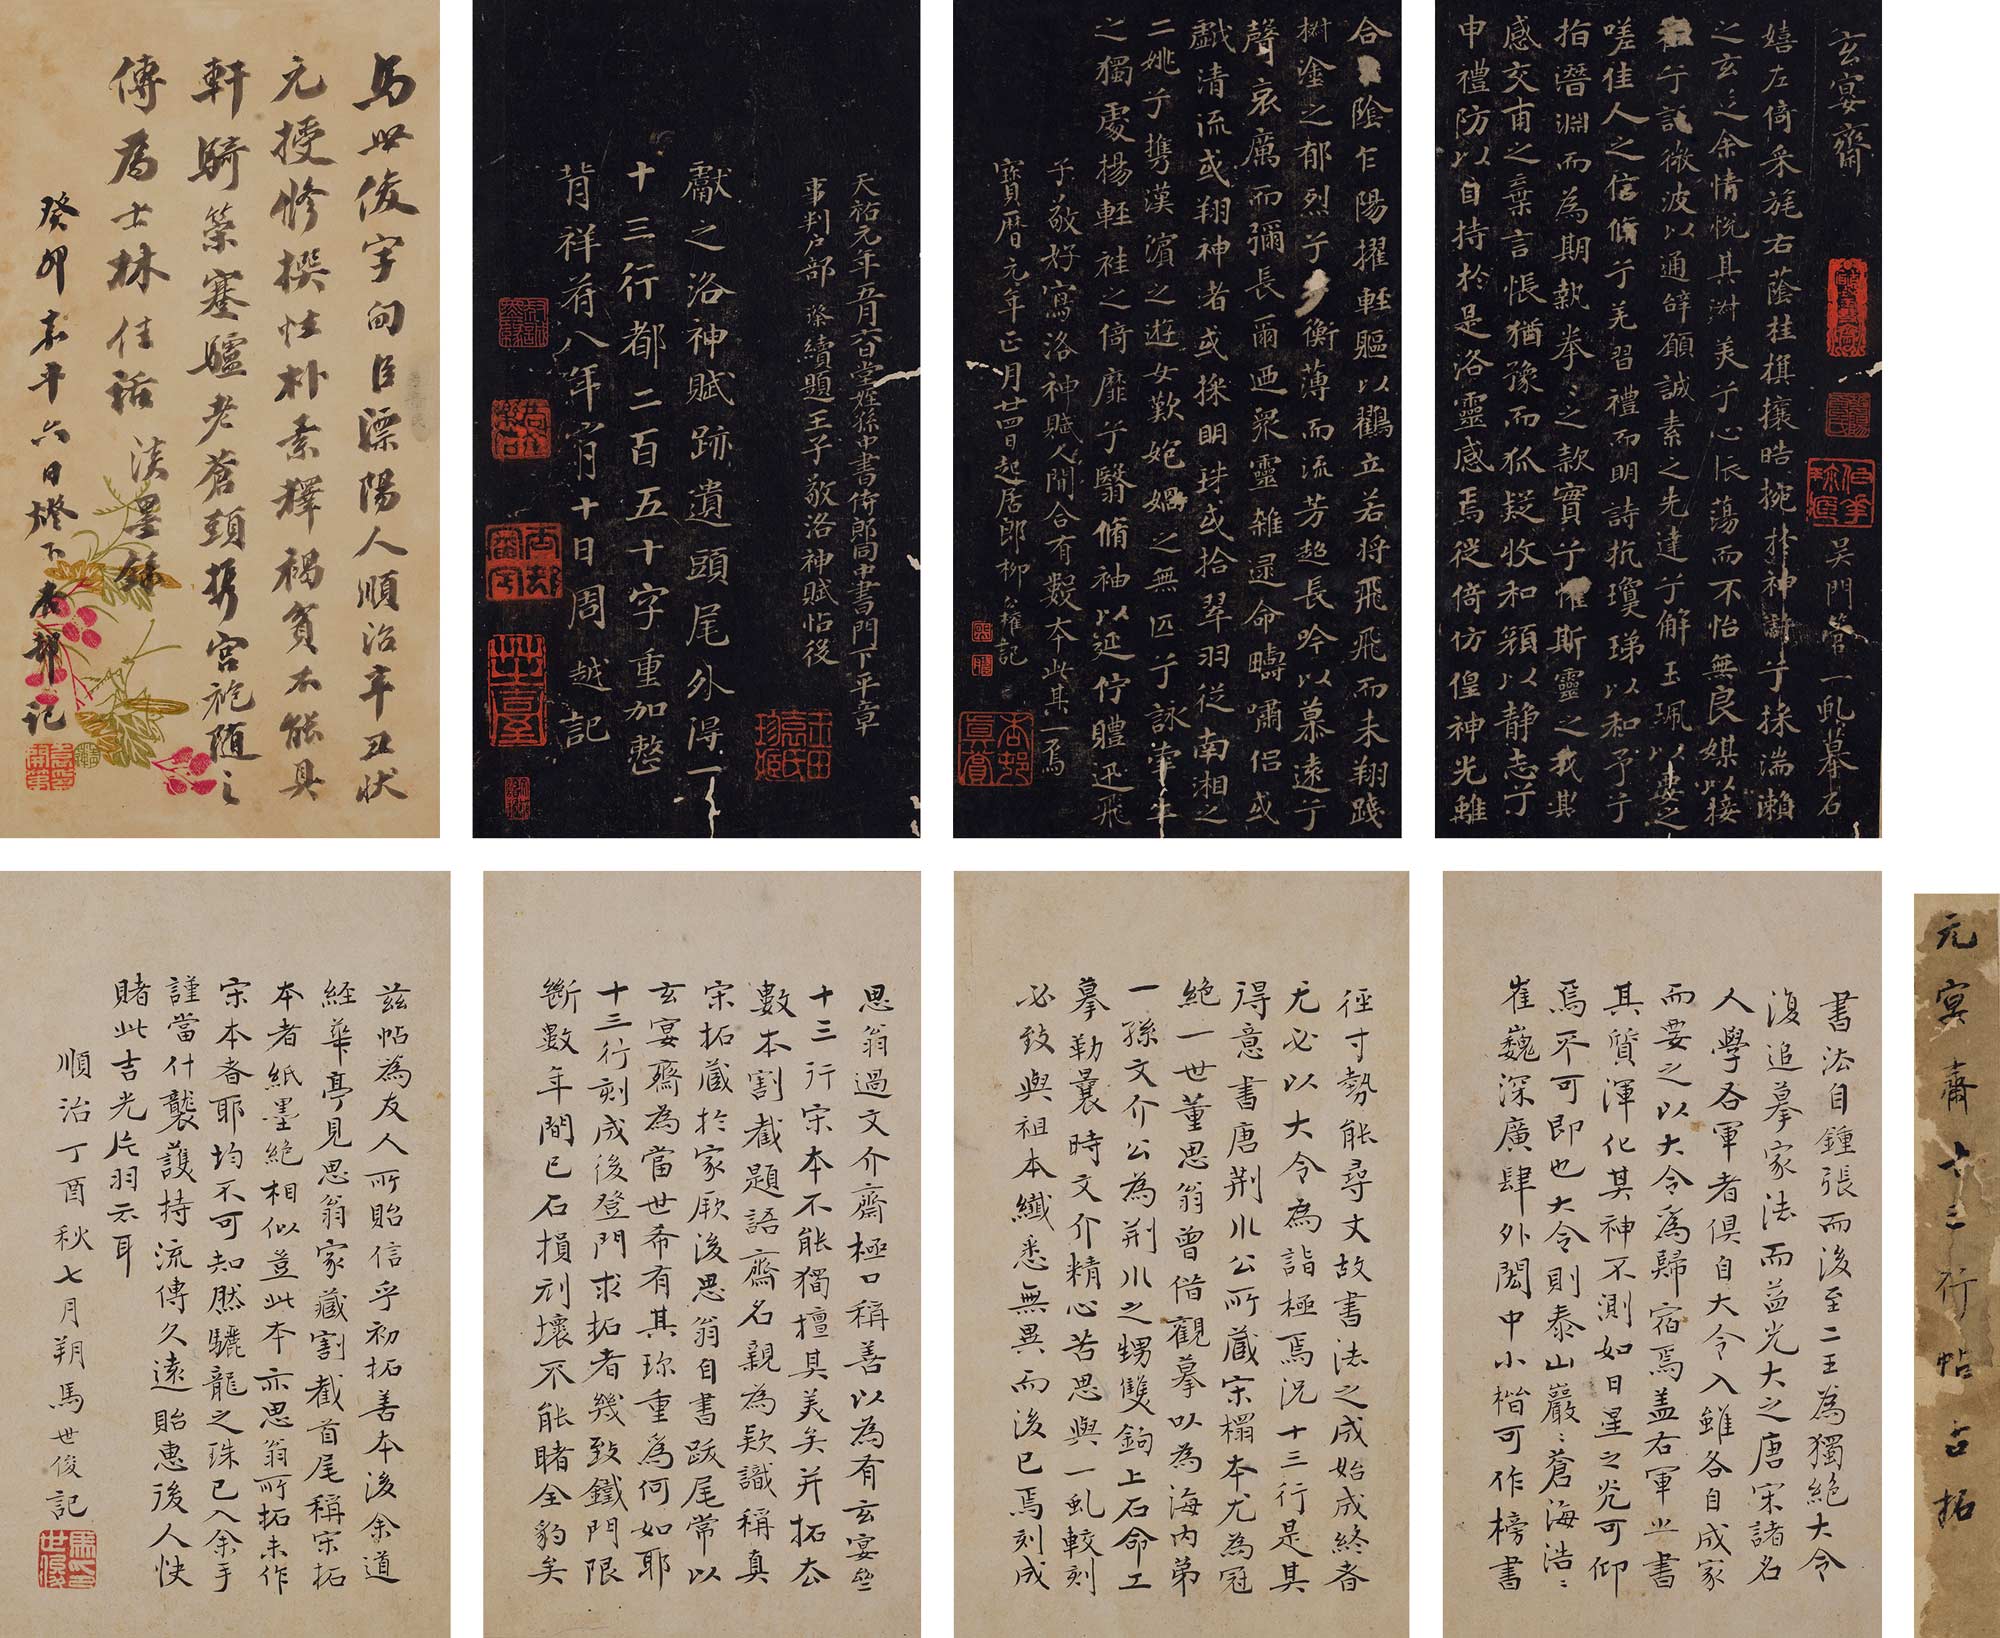 玄宴齋
吳門管一虬摹石
嬉左倚采旄右蔭桂棋攘晧捥於神滸兮採湍瀨
之玄芝余情悅其淑美兮心振蕩而不怡無良媒以接
兮託微波以通辭願誠素之先達兮解玉珮以要之
嗟佳人之信脩兮羌習禮而明詩抗瓊珶以和予兮
拍潛淵而為期執拳之款實兮懼斯靈之我其
感交甫之棄言悵猶豫而狐疑收和顏以静志兮
申禮防以自持於是洛靈感焉從倚仿偟神光離
合陰乍陽擢輊軀以鸛立若将飛飛而未翔踐
椒塗之郁烈兮步衡薄而流芳超長吟以慕遠兮
聲哀厲而彌長爾迺衆靈雜遝命疇嘯侶或
戲清流或翔神渚或採明珠或拾翠羽從南湘之
二姚兮攜漢濱之遊女歎媲媧之無匹兮詠牽牛
之獨處揚輊袿之倚靡兮翳脩袖以延佇體迅飛
子敬好寫洛神賦人間合有數本此其一焉
寶曆元年正月廿四日起居郎柳 權記
天祐元年五月六日堂姪孫中書侍郎同中書門下平章
事判户部 璨續題王子敬洛神賦帖後
獻之洛神賦跡遺頭尾外得一
十三行都二百五十字重加整
背祥苻八年肎月十日周越記
馬世俊字甸臣溧陽人順治辛丑狀
元授修撰性朴素釋褐貧不能具
軒騎策蹇驢老蒼頭携宮袍随之
傳為士林佳話 淡墨錄
癸卯嘉平六日燈下 邨記
元宴齋十三行帖古拓
書法自鍾張而後至二王為獨絕大令
復追摹家法而益光大之唐宋諸名
人學各軍者俱自大令入雖各自成家
而要之以大令為歸宿焉盖右軍之書
其質渾化其神不測如日星之光可仰
焉不可即也大令則泰山巖〻蒼海浩〻
崔巍深廣肆外閎中小楷可作榜書
徑寸勢能尋丈故書法之成始成終者
无必以大令為詣極焉況十三行是其
得意書唐荆川公所藏宋榻本尤為冠
絕一世董思翁曾借觀摹以為海内第
一孫文介公為荆川之甥雙鉤上石命工
摹勒曩時文介精心苦思與一虬較刻
必致與祖本纖悉無異而後已焉刻成
思翁過文介齋極口稱善以為有玄宴此
十三行宋本不能獨擅其美矣并拓去
數本割截題語齋名親為欵識稱真
宋拓藏於家厥後思翁自書跋尾常以
玄宴齋為當世希有其珎重為何如耶
十三行刻成後登門求拓者幾致鐵門限
斷數年間已石損刓壞不能睹全豹矣
兹帖為友人所貽信乎初拓善本後余道
經華亭見思翁家藏割截首尾稱宋拓
本者紙墨絕相似豈此本亦思翁所拓未作
宋本者耶均不可知然驪龍之珠已入余手
謹當什襲護持流傳久遠貽惠後人快
睹此吉光片羽云耳
順治丁酉秋七月朔馬世俊記